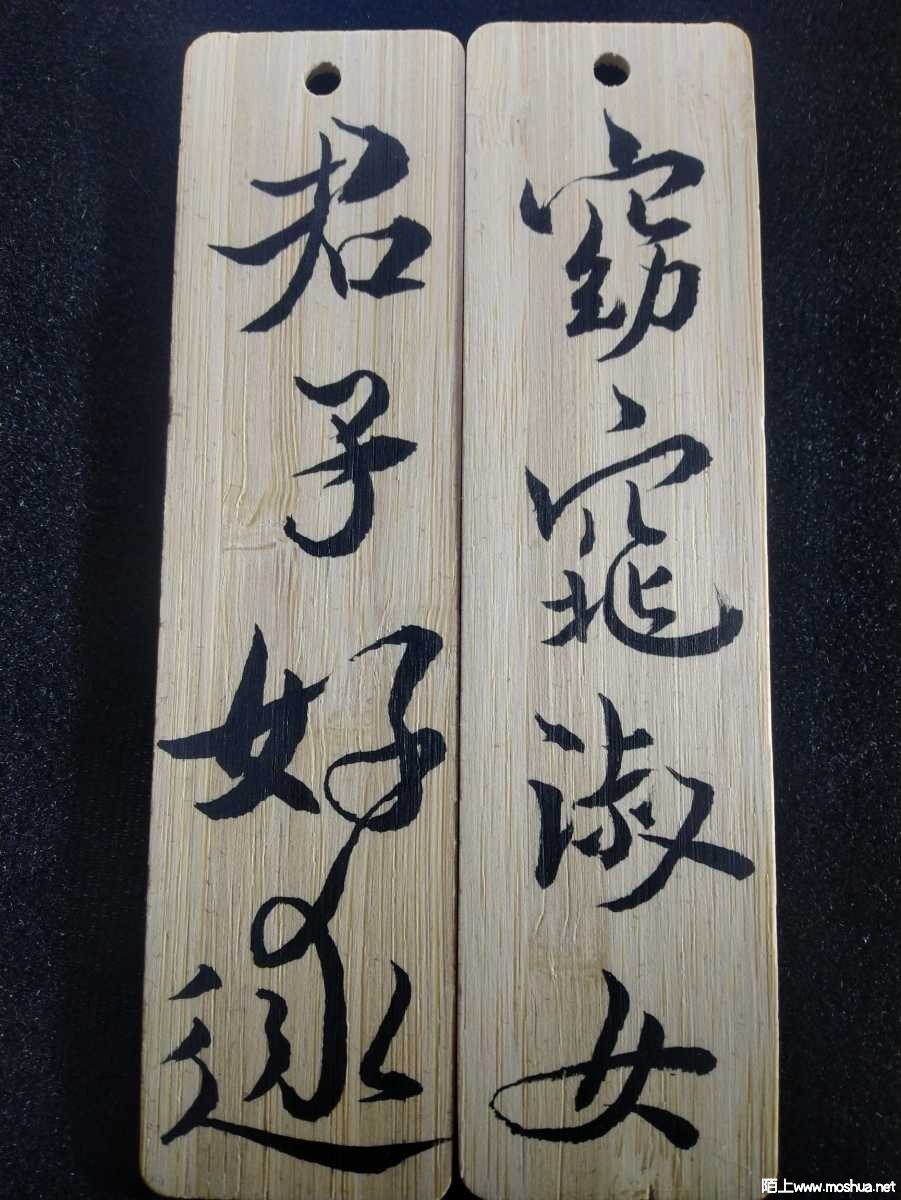 窈窕淑女
君子好逑
陌上www.moshua.net